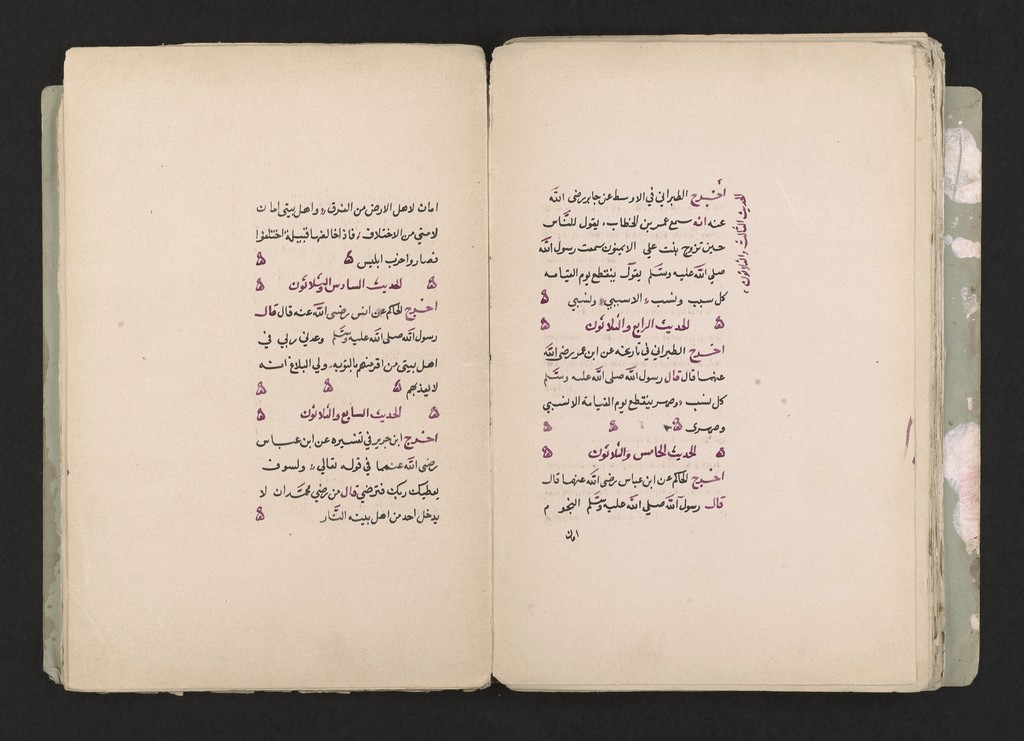 الحديث الثالث والثلاثون
أخرج الطبراني في الاوسط عن جابر رضى الله
عنه انه سمع عمر بن الخطاب، يقول للناس
حين تزوج بنت علي الا تهنون سمعت رسول الله
صلى الله عليه وسلم يقول ينقطع يوم القيامه
كل سبب ونسب الا سببي ونسبي ه
ه الحديث الرابع والثلاثون ه
اخرج الطبراني في تاريخه عن ابن عمر رضى الله
عنهما قال قال رسول الله صلى الله عليه وسلم
كل نسب وصهر ينقطع يوم القيامة الا نسبي
وصهرى ه ه ه
ه الحديث الخامس والثلاثون ه
اخرج الحاكم عن ابن عباس رضى الله عنهما قال
قال رسول الله صلى الله عليه وسلم النجوم
امان
امان لاهل الارض من الغرق، واهل بيتى امان
لامتي من الاختلاف، فاذا خالفها قبيلة اختلفوا
فصاروا حزب ابليس ه ه
ه الحديث السادس والثلاثون ه
اخرج الحاكم عن انس رضى الله عنه قال قال
رسول الله صلى الله عليه وسلم وعدني ربي في
اهل بيتى من اقر منهم بالتوحيد ولي البلاغ انه
لا يعذبهم ه ه ه
ه الحديث السابع والثلاثون ه
اخرج ابن جرير في تفسيره عن ابن عباس
رضى الله عنهما في قوله تعالى، ولسوف
يعطيك ربك فترضي قال من رضي محمد ان لا
يدخل احد من اهل بيته النار ه